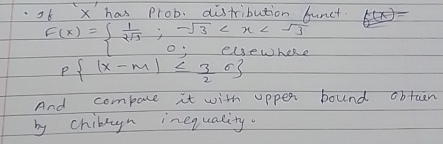 • If 'X' has Prob. distribution funct.
F(x) = { 1/2√3 ; -√3 < x < √3
0; elsewhere
P{ |x - m| ≤ 3/2 σ}
And compare it with upper bound obtain
by chibhyn inequality.